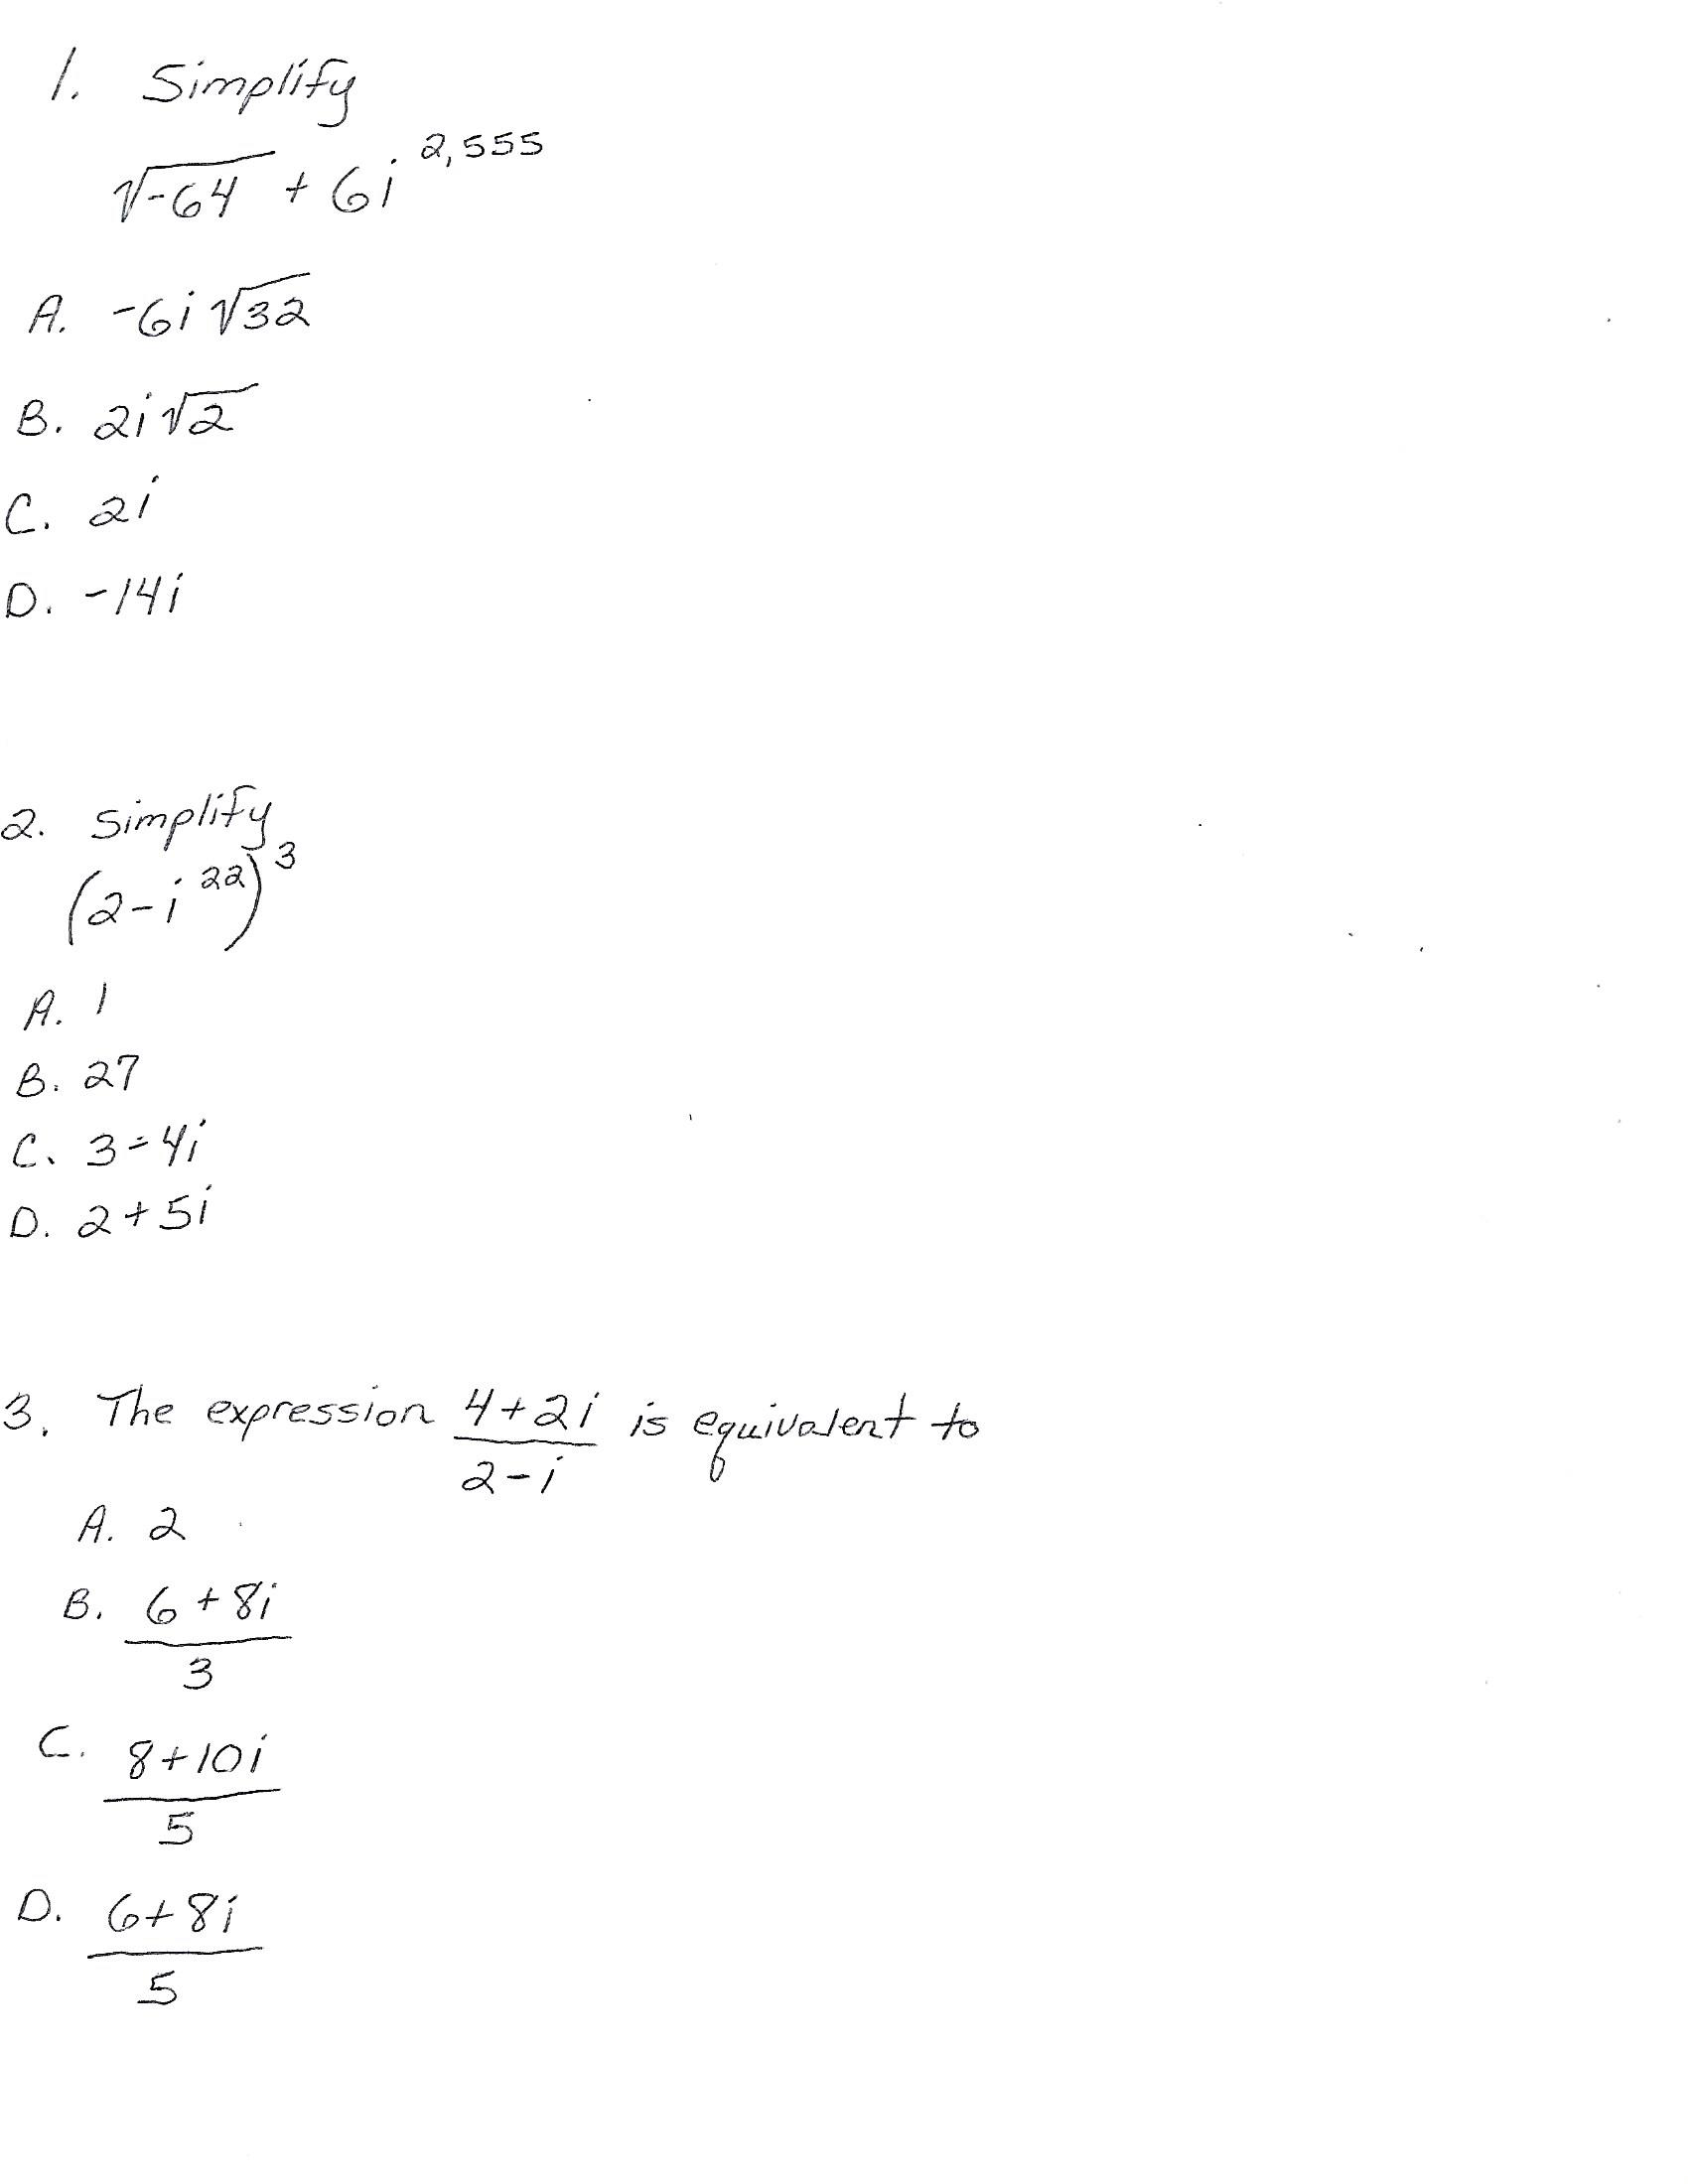 1. Simplify
√-64 + 6i^2,555
A. -6i√32
B. 2i√2
C. 2i
D. -14i
2. Simplify
(2-i^22)^3
A. 1
B. 27
C. 3-4i
D. 2+5i
3. The expression (4+2i)/(2-i) is equivalent to
A. 2
B. (6+8i)/3
C. (8+10i)/5
D. (6+8i)/5